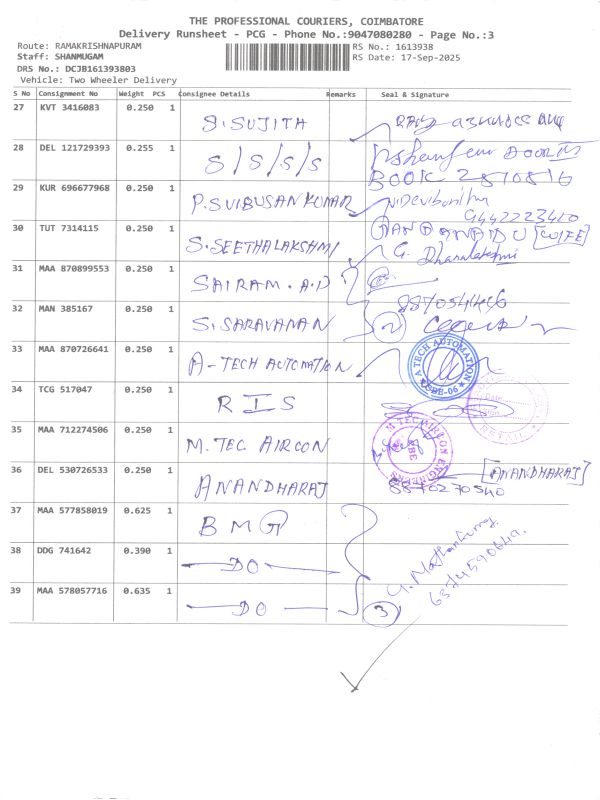 THE PROFESSIONAL COURIERS, COIMBATORE
Delivery Runsheet - PCG - Phone No.:9047080280 - Page No.:3
Route: RAMAKRISHNAPURAM
RS No.: 1613938
Staff: SHANMUGAM
RS Date: 17-Sep-2025
DRS No.: DCJB161393803
Vehicle: Two Wheeler Delivery
S No Consignment No Weight PCS Consignee Details Remarks Seal & Signature
27 KVT 3416083 0.250 1 S.SUJITH
28 DEL 121729393 0.255 1 S/S/S/S DOOR
BOOK
29 KUR 696677968 0.250 1 P.SUIBUSANKUMAR
9442223420
30 TUT 7314115 0.250 1 S.SEETHALAKSHMI [WIFE]
G. Dhanalakshmi
31 MAA 870899553 0.250 1 SAIRAM.A.D
32 MAN 385167 0.250 1 S.SARAVANAN 2
33 MAA 870726641 0.250 1 A-TECH AUTOMATION
A TECH AUTOMATION
CBE-06
34 TCG 517047 0.250 1 RIS
Date
RETAIL
35 MAA 712274506 0.250 1 M.TEC AIRCON
M TEC AIRCON ENGINEERS
CBE
36 DEL 530726533 0.250 1 ANANDHARAJ [ANANDHARAJ]
8870270540
37 MAA 577858019 0.625 1 BMG
38 DDG 741642 0.390 1 DO
39 MAA 578057716 0.635 1 DO 3